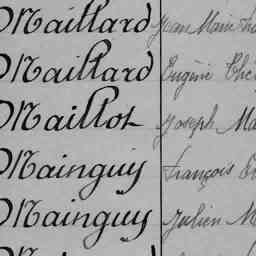 Maillard Jean Marie
Maillard Eugène
Maillot Joseph
Mainguy François
Mainguy Julien